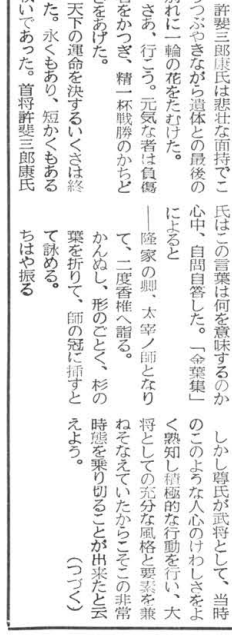 許斐三郎康氏は悲壮な面持でこ
うつぶやきながら遺体との最後の
別れに一輪の花をたむけた。
さあ、行こう。元気な者は負傷
者をかつぎ、精一杯戦勝のかちど
きをあげた。
天下の運命を決するいくさは終
った。永くもあり、短かくもある
戦いであった。首将許斐三郎康氏
氏はこの言葉は何を意味するのか
心中、自問自答した。「金葉集」
によると
――隆家の卿、太宰ノ師となり
て、二度香椎へ詣る。
かんぬし、形のごとく、杉の
葉を折りて、師の冠に挿すと
て詠める。
ちはや振る
しかし尊氏が武将として、当時
のこのような人心のけわしさをよ
く熟知し積極的な行動を行い、大
将としての充分な風格と要素を兼
ねそなえていたからこそこの非常
時態を乗り切ることが出来たと云
えよう。
（つづく）